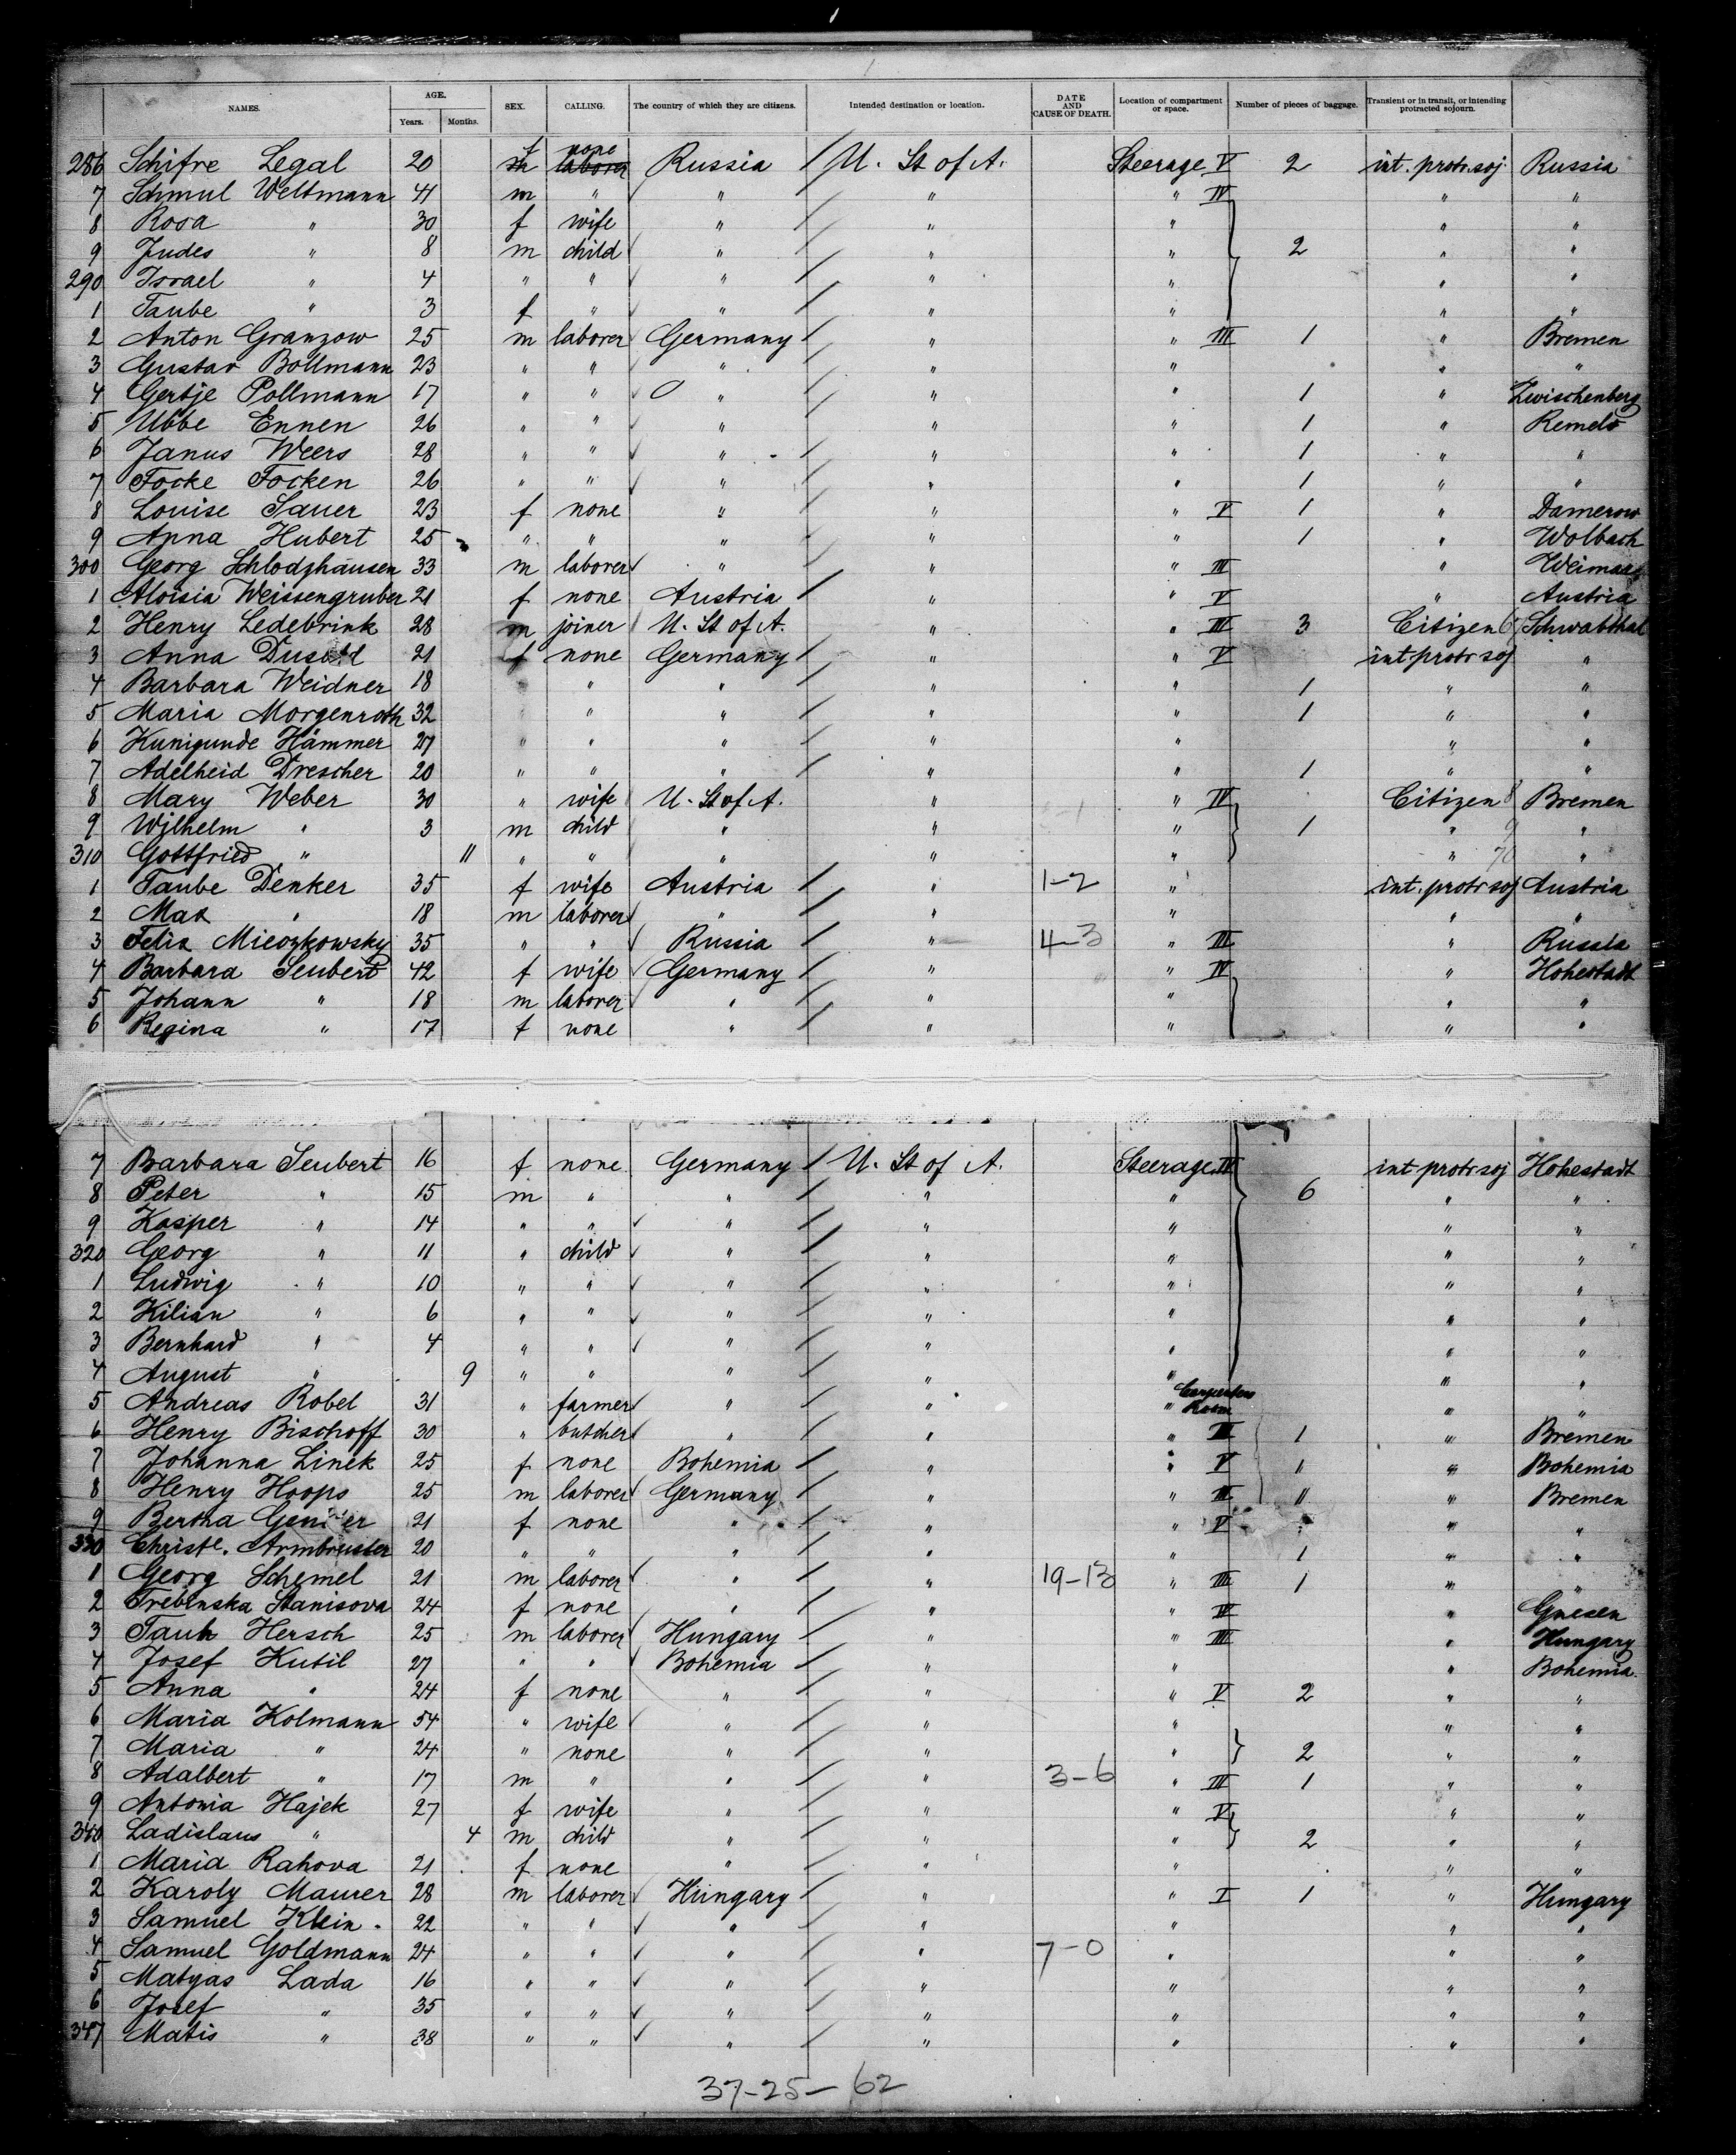 NAMES. AGE. Years. Months. SEX. CALLING. The country of which they are citizens. Intended destination or location. DATE AND CAUSE OF DEATH. Location of compartment or space. Number of pieces of baggage. Transient or in transit, or intending protracted sojourn.
286 Schifre Legal 20 f none laborer Russia / U. St of A. Steerage V 2 int. protr. soj Russia
7 Schmul Weltmann 41 m " " / " " IV " "
8 Rosa " 30 f wife " / " " " "
9 Judes " 8 m child " / " " 2 " "
290 Israel " 4 " " " / " " " "
1 Taube " 3 f " " / " " " "
2 Anton Granzow 25 m laborer Germany / " " III 1 " Bremen
3 Gustav Bollmann 23 " " " / " " " "
4 Gertje Pollmann 17 " " " / " " 1 " Zwischenberg
5 Ubbe Ennen 26 " " " / " " 1 " Remels
6 Janus Weers 28 " " " / " " 1 " "
7 Focke Focken 26 " " " / " " 1 " "
8 Louise Sauer 23 f none " / " " V 1 " Damerow
9 Anna Hubert 25 " " " / " " 1 " Wolbach
300 Georg Schlodzhausen 33 m laborer " / " " III " Weimar
1 Aloisia Weissengruber 21 f none Austria / " " V " Austria
2 Henry Ledebrink 28 m joiner U. St of A. " " III 3 Citizen Schwabthal
3 Anna 21 f none Germany / " " V int protr soj "
4 Barbara Weidner 18 " " / " " 1 " "
5 Maria Morgenroth 32 " " " / " " 1 " "
6 Kunigunde Hämmer 27 " " " / " " " "
7 Adelheid Drescher 20 " " " / " " 1 " "
8 Mary Weber 30 " wife U. St of A. " " IV Citizen 8 Bremen
9 Wilhelm " 3 m child " " " 1 " 9 "
310 Gottfried " 11 " " " " " " 70 "
1 Taube Denker 35 f wife Austria / " 1-2 " int. protr soj Austria
2 Max " 18 m laborer " / " " " "
3 Felix Mieozkowsky 35 " " Russia / " 4-3 " III " Russia
4 Barbara Seubert 42 f wife Germany / " " IV " Hohestadt
5 Johann " 18 m laborer " / " " " "
6 Regina " 17 f none " / " " " "
7 Barbara Seubert 16 f none Germany / U. St of A. Steerage IV int protr soj Hohestadt
8 Peter " 15 m " " / " " 6 " "
9 Kasper " 14 " " " / " " " "
320 Georg " 11 " child " / " " " "
1 Ludwig " 10 " " " / " " " "
2 Kilian " 6 " " " / " " " "
3 Bernhard " 4 " " " / " " " "
4 August " 9 " " " / " " " "
5 Andreas Robel 31 " farmer " / " " Carpenters Room " "
6 Henry Bischoff 30 " butcher " / " " III 1 " Bremen
7 Johanna Linek 25 f none Bohemia / " " V " " Bohemia
8 Henry Hoops 25 m laborer Germany / " " III " " Bremen
9 Bertha 21 f none " / " " V " "
330 Christe. Armbruster 20 " " " / " " 1 " "
1 Georg Schemel 21 m laborer " / " 19-13 " III 1 " "
2 Trebinska Stanisova 24 f none " / " " IV " Gnesen
3 Taub Hersch 25 m laborer Hungary / " " III " Hungary
4 Josef Kutil 27 " " Bohemia / " " " Bohemia.
5 Anna " 24 f none " / " " V 2 " "
6 Maria Kolmann 54 " wife " / " " " "
7 Maria " 24 " none " / " " 2 " "
8 Adalbert " 17 m " " / " 3-6 " III 1 " "
9 Antonia Hajek 27 f wife " / " " V " "
340 Ladislaus " 4 m child " / " " 2 " "
1 Maria Rahova 21 f none " / " " " "
2 Karoly Maurer 28 m laborer Hungary / " " I 1 " Hungary
3 Samuel Klein. 22 " " " / " " " "
4 Samuel Goldmann 24 " " " / " 7-0 " " "
5 Matyas Lada 16 " " " / " " " "
6 Josef " 35 " " " / " " " "
347 Matis " 38 " " " / " " " "
37-25-62